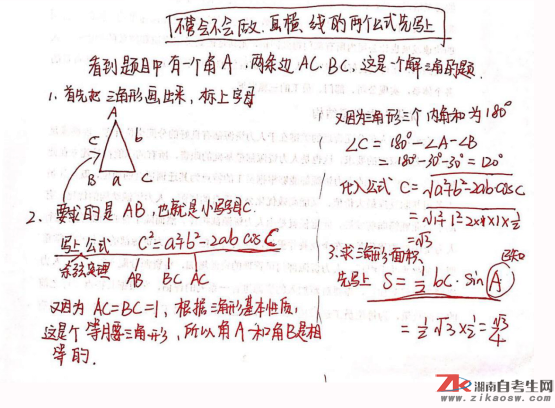 不管会不会做.画横线的两个公式先马上
看到题目中有一个角A.两条边AC.BC.这是个解三角形题.
1.首先把三角形画出来,标上字母
A
c b
B a C
2.要求的是AB,也就是小写字母C.
马上公式 C²=a²+b²-2ab cosC
余弦定理 AB BC AC
又因为AC=BC=1,根据三角形基本性质,
这是个等腰三角形,所以角A和角B是相
等的.
又因为三角形三个内角和为180°
∠C=180°-∠A-∠B
=180°-30°-30°=120°
代入公式 C=√a²+b²-2abcosC
=√1²+1²-2×1×1×½
=√3
3.求三角形面积.
已知
先马上 S=½bc·sin A
=½√3×½=√3/4
ZK 湖南自考生网
www.zikaosw.com